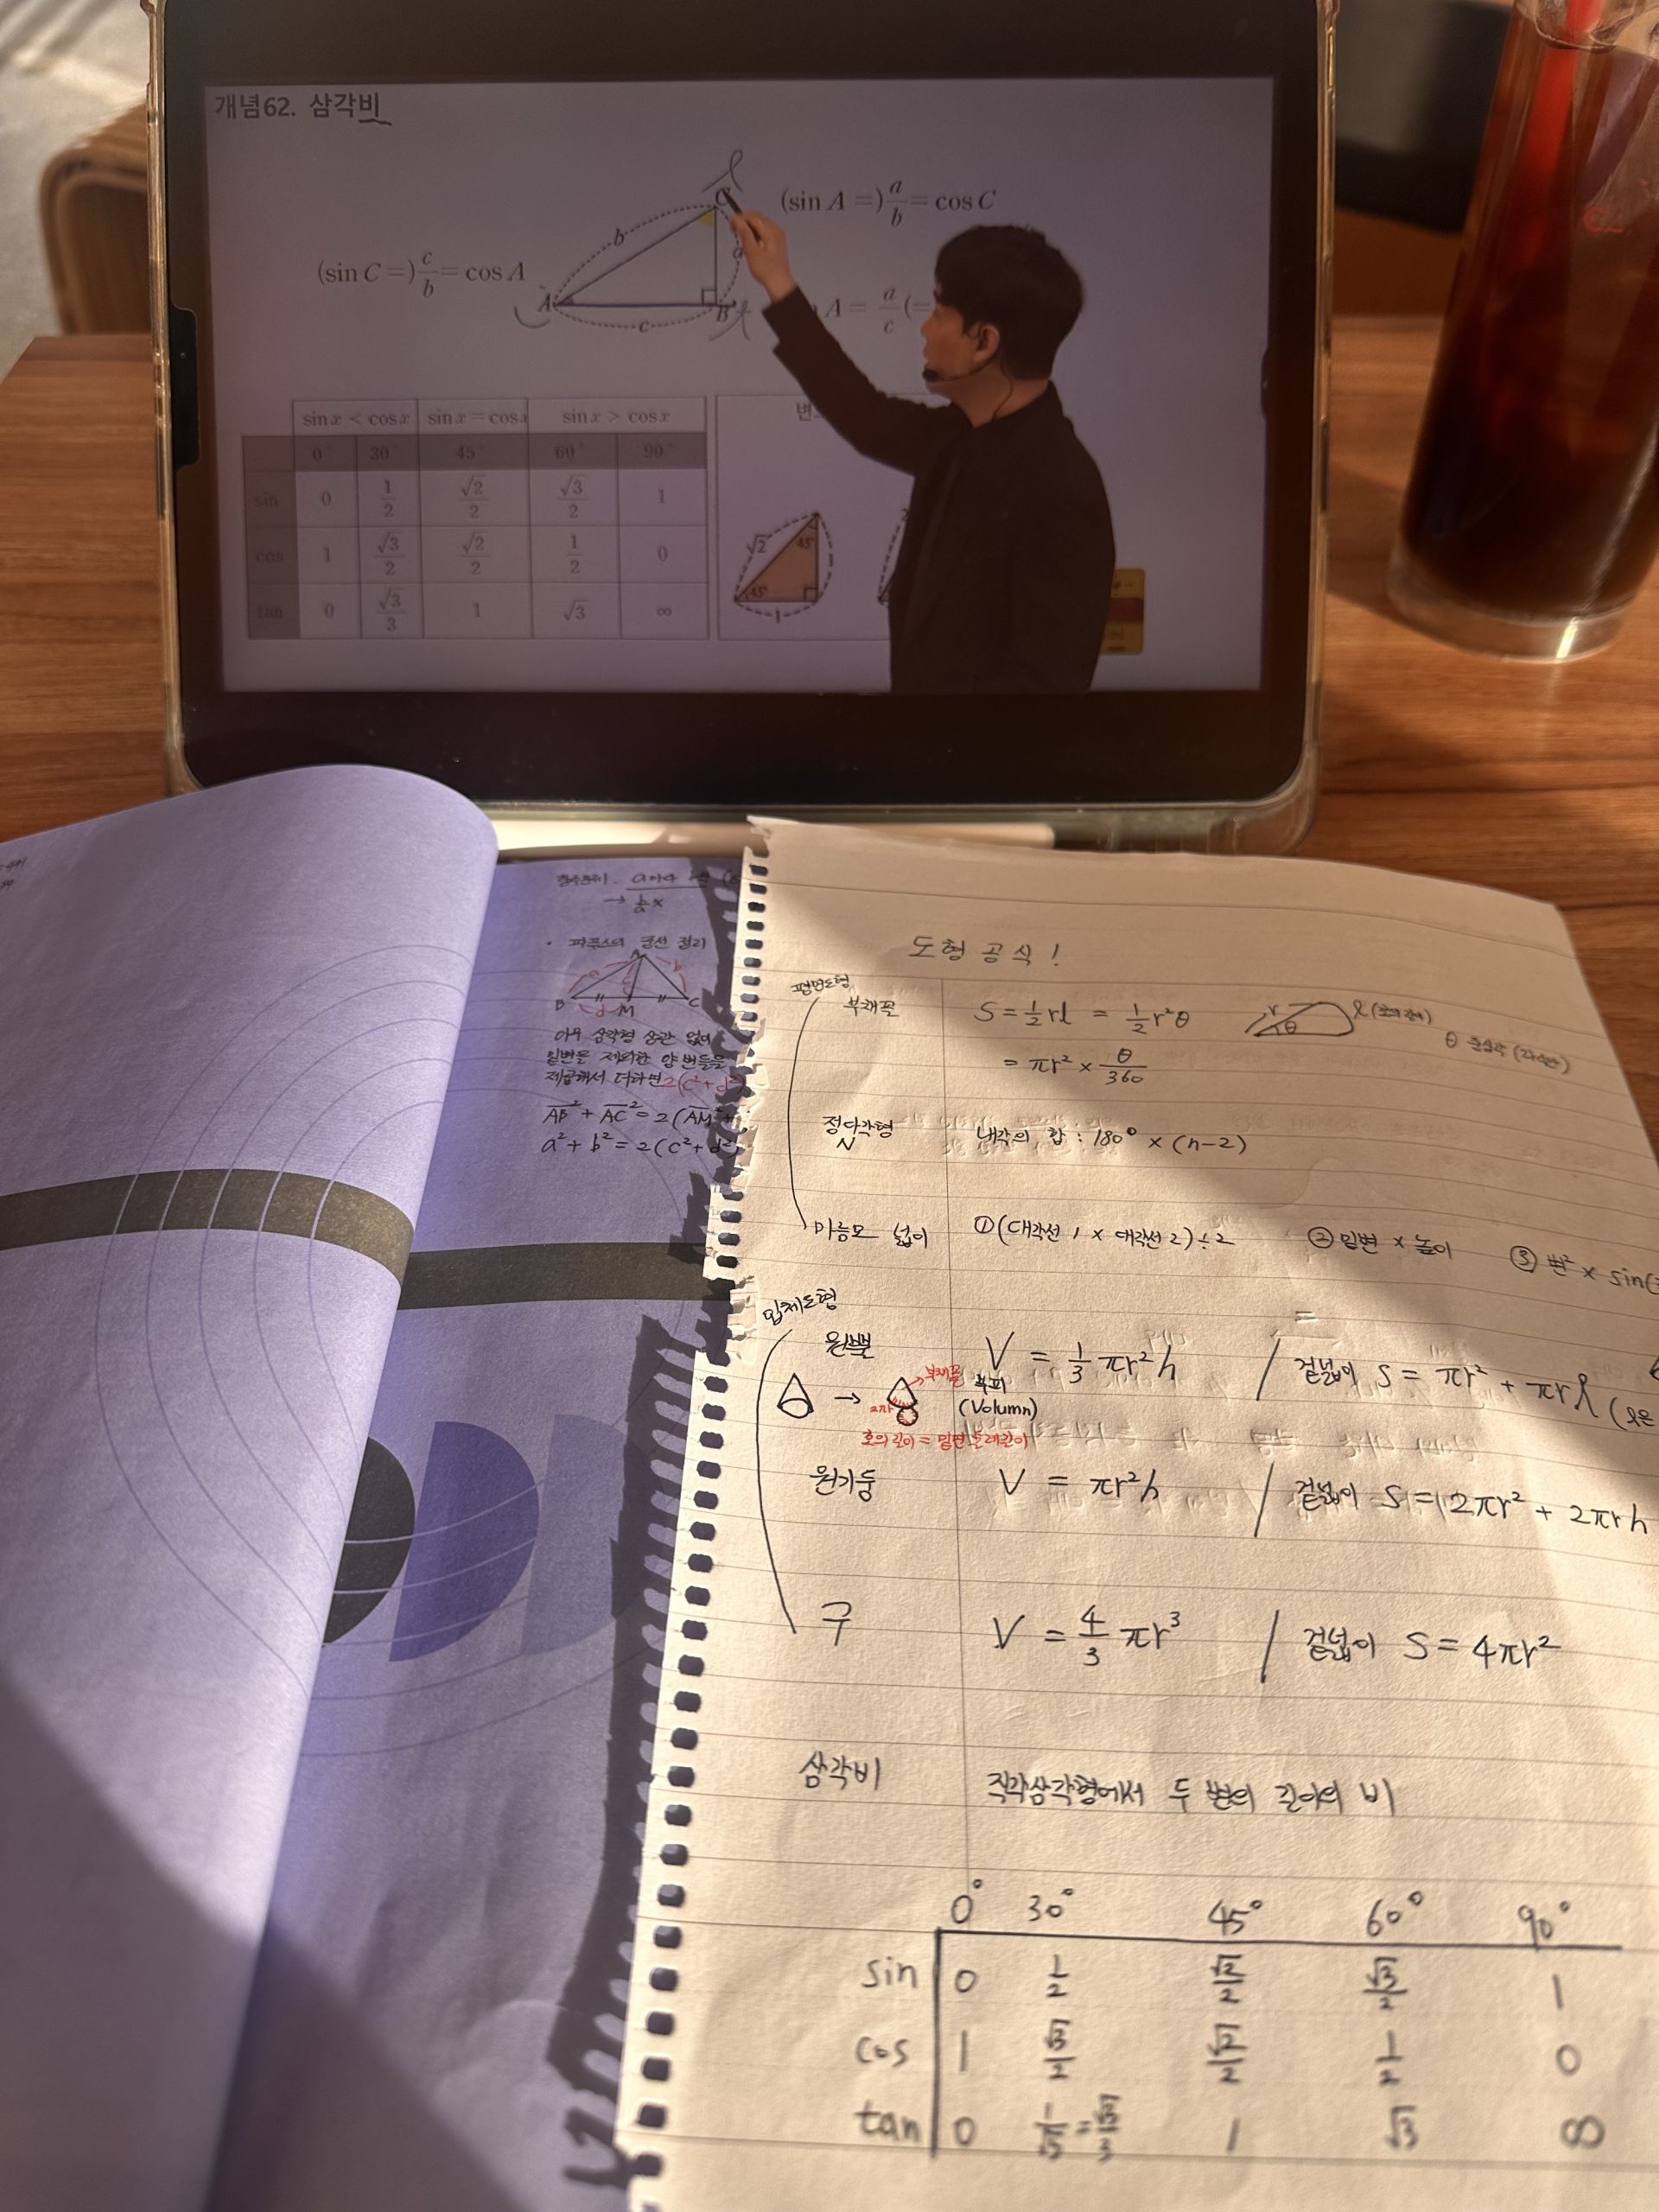 개념62. 삼각비
(sin A =) a/b = cos C
(sin C =) c/b = cos A
A = a/c (=
C
b
a
A
B
c
sin x < cos x sin x = cos x sin x > cos x
0° 30° 45° 60° 90°
sin 0 1/2 √2/2 √3/2 1
cos 1 √3/2 √2/2 1/2 0
tan 0 √3/3 1 √3 ∞
변
√2 45°
45° 1
1
→ b/a x
• 파푸스의 중선 정리
A
a b
c
B M C
d
아무 삼각형 상관 없이
밑변을 제외한 양 변들을
제곱해서 더하면 2(c²+d²
AB² + AC² = 2(AM² +
a² + b² = 2(c²+d²)
도형 공식!
평면도형
부채꼴 S = 1/2 rl = 1/2 r²θ
r θ l (호의 길이)
θ 중심각
= πr² × θ/360
정다각형 내각의 합 : 180° × (n-2)
N
마름모 넓이 ①(대각선 1 × 대각선 2) ÷ 2 ② 밑변 × 높이 ③ 변² × sin(
입체도형
원뿔 V = 1/3 πr²h / 겉넓이 S = πr² + πrl (l은
부피
(Volumn)
→ →부채꼴
2πr
호의 길이 = 밑면 둘레길이
원기둥 V = πr²h / 겉넓이 S = 2πr² + 2πrh
구 V = 4/3 πr³ / 겉넓이 S = 4πr²
삼각비 직각삼각형에서 두 변의 길이의 비
0° 30° 45° 60° 90°
sin 0 1/2 √2/2 √3/2 1
cos 1 √3/2 √2/2 1/2 0
tan 0 1/√3 = √3/3 1 √3 ∞